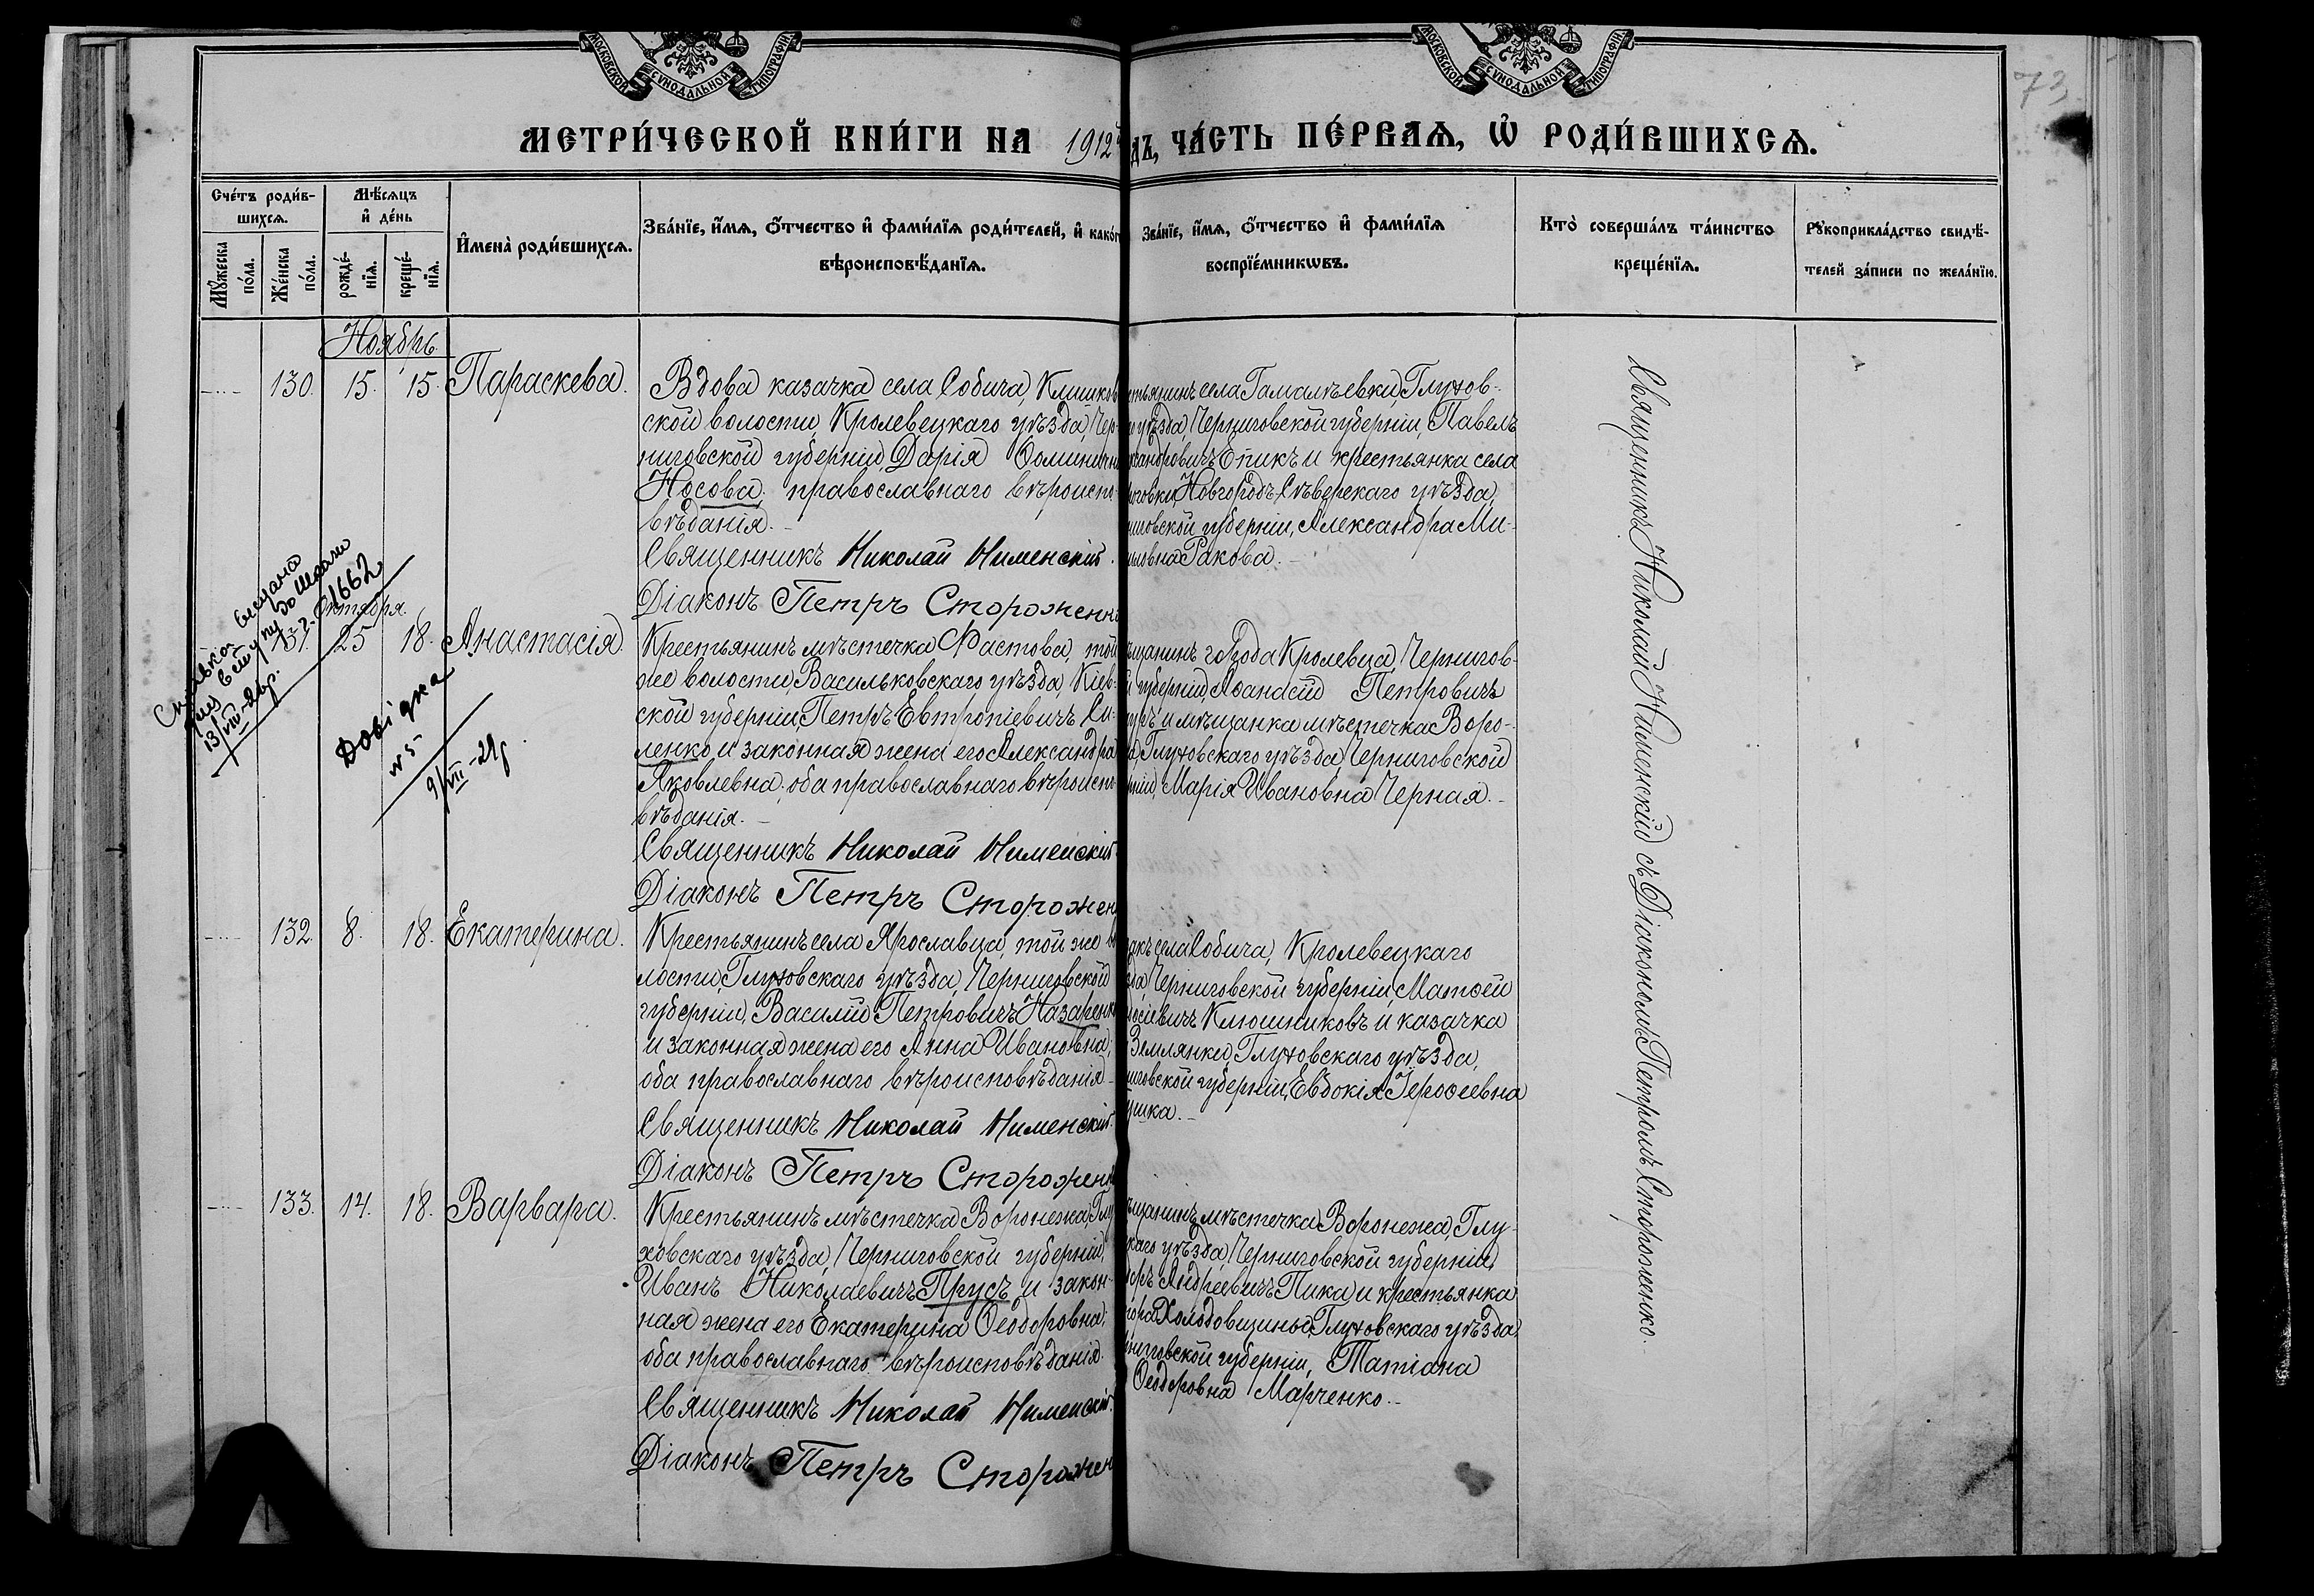 МОСКОВСКОЙ СѴНОДАЛЬНОЙ ТИПОГРАФІИ
МОСКОВСКОЙ СѴНОДАЛЬНОЙ ТИПОГРАФІИ
73
МЕТРИ́ЧЕСКОЙ КНИ́ГИ НА 1912
дъ, ЧА́СТЬ ПЕ́РВАѦ, Ѡ҆ РОДИ́ВШИХСѦ.
Сче́тъ роди́в-
шихсѧ.
Мꙋ́жеска по́ла.
Же́нска по́ла.
Мѣ́сѧцъ
и҆ де́нь
рожде́-
нїѧ.
креще́-
нїѧ.
И҆мена̀ роди́вшихсѧ.
Зва́нїе, и҆́мѧ, ѻ҆́тчество и҆ фами́лїѧ роди́телей, и҆ како́г
вѣроисповѣ́данїѧ.
Зва́нїе, и҆́мѧ, ѻ҆́тчество и҆ фами́лїѧ
воспрїе́мникѡвъ.
Кто̀ соверша́лъ та́инство
креще́нїѧ.
Рꙋкоприкла́дство свидѣ́-
телей за́писи по жела́нїю.
Ноябрь.
130. 15. 15. Параскева.
Вдова казачка села Собича, Клишков
ской волости, Кролевецкаго уѣзда, Чер-
ниговской губерніи Дарія Ѳоминична
Носова, православнаго вѣроиспо-
вѣданія.
Священникъ Николай Нименскій.
Діаконъ Петръ Стороженко
стьянинъ села Гамалѣевки, Глухов-
уѣзда, Черниговской губерніи, Павелъ
ксандровичъ Епикъ и крестьянка села
Новгородъ-Сѣверскаго уѣзда,
ниговской губерніи, Александра Ми-
Ракова.
Октября.
131. 25 18. Анастасія.
1662
13/VIII-29р.
Довідка
№ 5
9/VII-29р.
Крестьянинъ мѣстечка Фастова, той
же волости, Васильковскаго уѣзда, Кіев-
ской губерніи, Петръ Евтропіевичъ Си-
ленко и законная жена его Александра
Яковлевна; оба православнаго вѣроиспо-
вѣданія.
Священникъ Николай Нименскій
Діаконъ Петръ Сторожен
ѣщанинъ города Кролевца, Чернигов-
й губерніи, Аѳанасій Петровичъ
и мѣщанка мѣстечка Воро-
а, Глуховскаго уѣзда, Черниговской
рніи, Марія Ивановна Черная.
132. 8. 18. Екатерина.
Крестьянинъ села Ярославца, той же во
лости, Глуховскаго уѣзда, Черниговской
губерніи, Василій Петровичъ Назаренко
и законная жена его Анна Ивановна;
оба православнаго вѣроисповѣданія.
Священникъ Николай Нименскій.
Діаконъ Петръ Стороженк
акъ села Собича, Кролевецкаго
зда, Черниговской губерніи, Матѳей
осіевичъ Клюшниковъ и казачка
Землянки, Глуховскаго уѣзда,
ниговской губерніи, Евдокія Іероѳеевна
ушка.
133. 14. 18. Варвара.
Крестьянинъ мѣстечка Воронежа, Глу
ховскаго уѣзда, Черниговской губерніи,
Иванъ Николаевичъ Прусъ и закон-
ная жена его Екатерина Ѳеодоровна;
оба православнаго вѣроисповѣданія.
Священникъ Николай Нименскій.
Діаконъ Петръ Сторожен
ѣщанинъ мѣстечка Воронежа, Глу-
каго уѣзда, Черниговской губерніи,
Андреевичъ Пика и крестьянка
тора Холодовщины, Глуховскаго уѣзда,
ниговской губерніи, Татіана
Ѳеодоровна Марченко.
Священникъ Николай Нименскій съ Діакономъ Петромъ Стороженко.